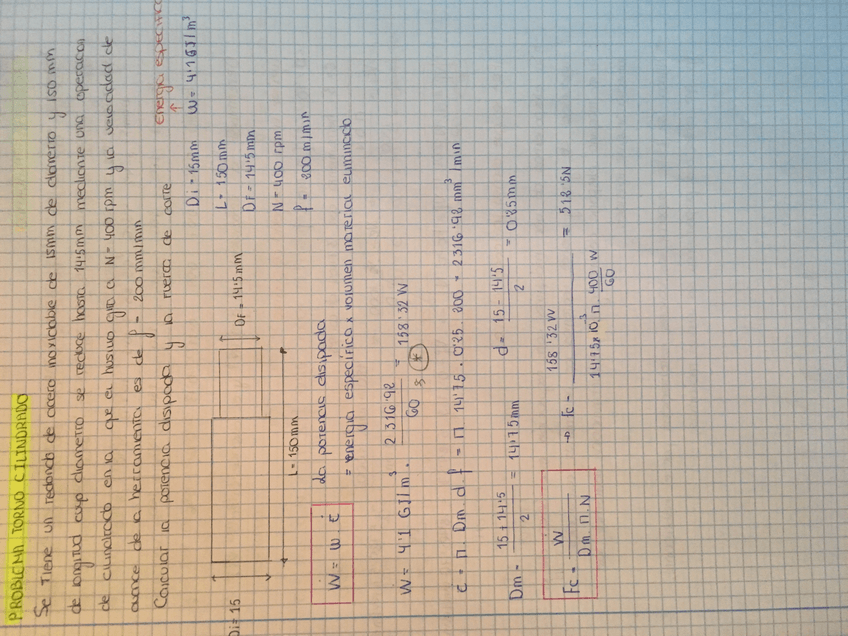 PROBLEMA TORNO CILINDRADO
Se tiene un redondo de acero inoxidable de 15mm de diametro y 150 mm
de longitud cuyo diametro se reduce hasta 14'5mm mediante una operación
de cilindrado en la que el husillo gira a N = 400 rpm y la velocidad de
avance de la herramienta es de f = 200 mm/min
Calcular la potencia disipada y la fuerza de corte
energia especifica
Di = 15mm W = 4'1 GJ/m³
L = 150mm
DF = 14'5mm
N = 400 rpm
f = 200 m/min
Di = 15
DF = 14'5mm
L = 150mm
Ẇ = w ċ
La potencia disipada
= energia especifica x volumen material eliminado
Ẇ = 4'1 GJ/m³ . 2316'92 / 60 s (*) = 158'32 W
ċ = π . Dm . d . f = π . 14'75 . 0'25 . 200 = 2316'92 mm³/min
Dm = 15 + 14'5 / 2 = 14'75mm d = 15 - 14'5 / 2 = 0'25mm
Fc = Ẇ / Dm . π . N → Fc = 158'32 W / 14'75 x 10⁻³ . π . 400/60 W = 512'5N